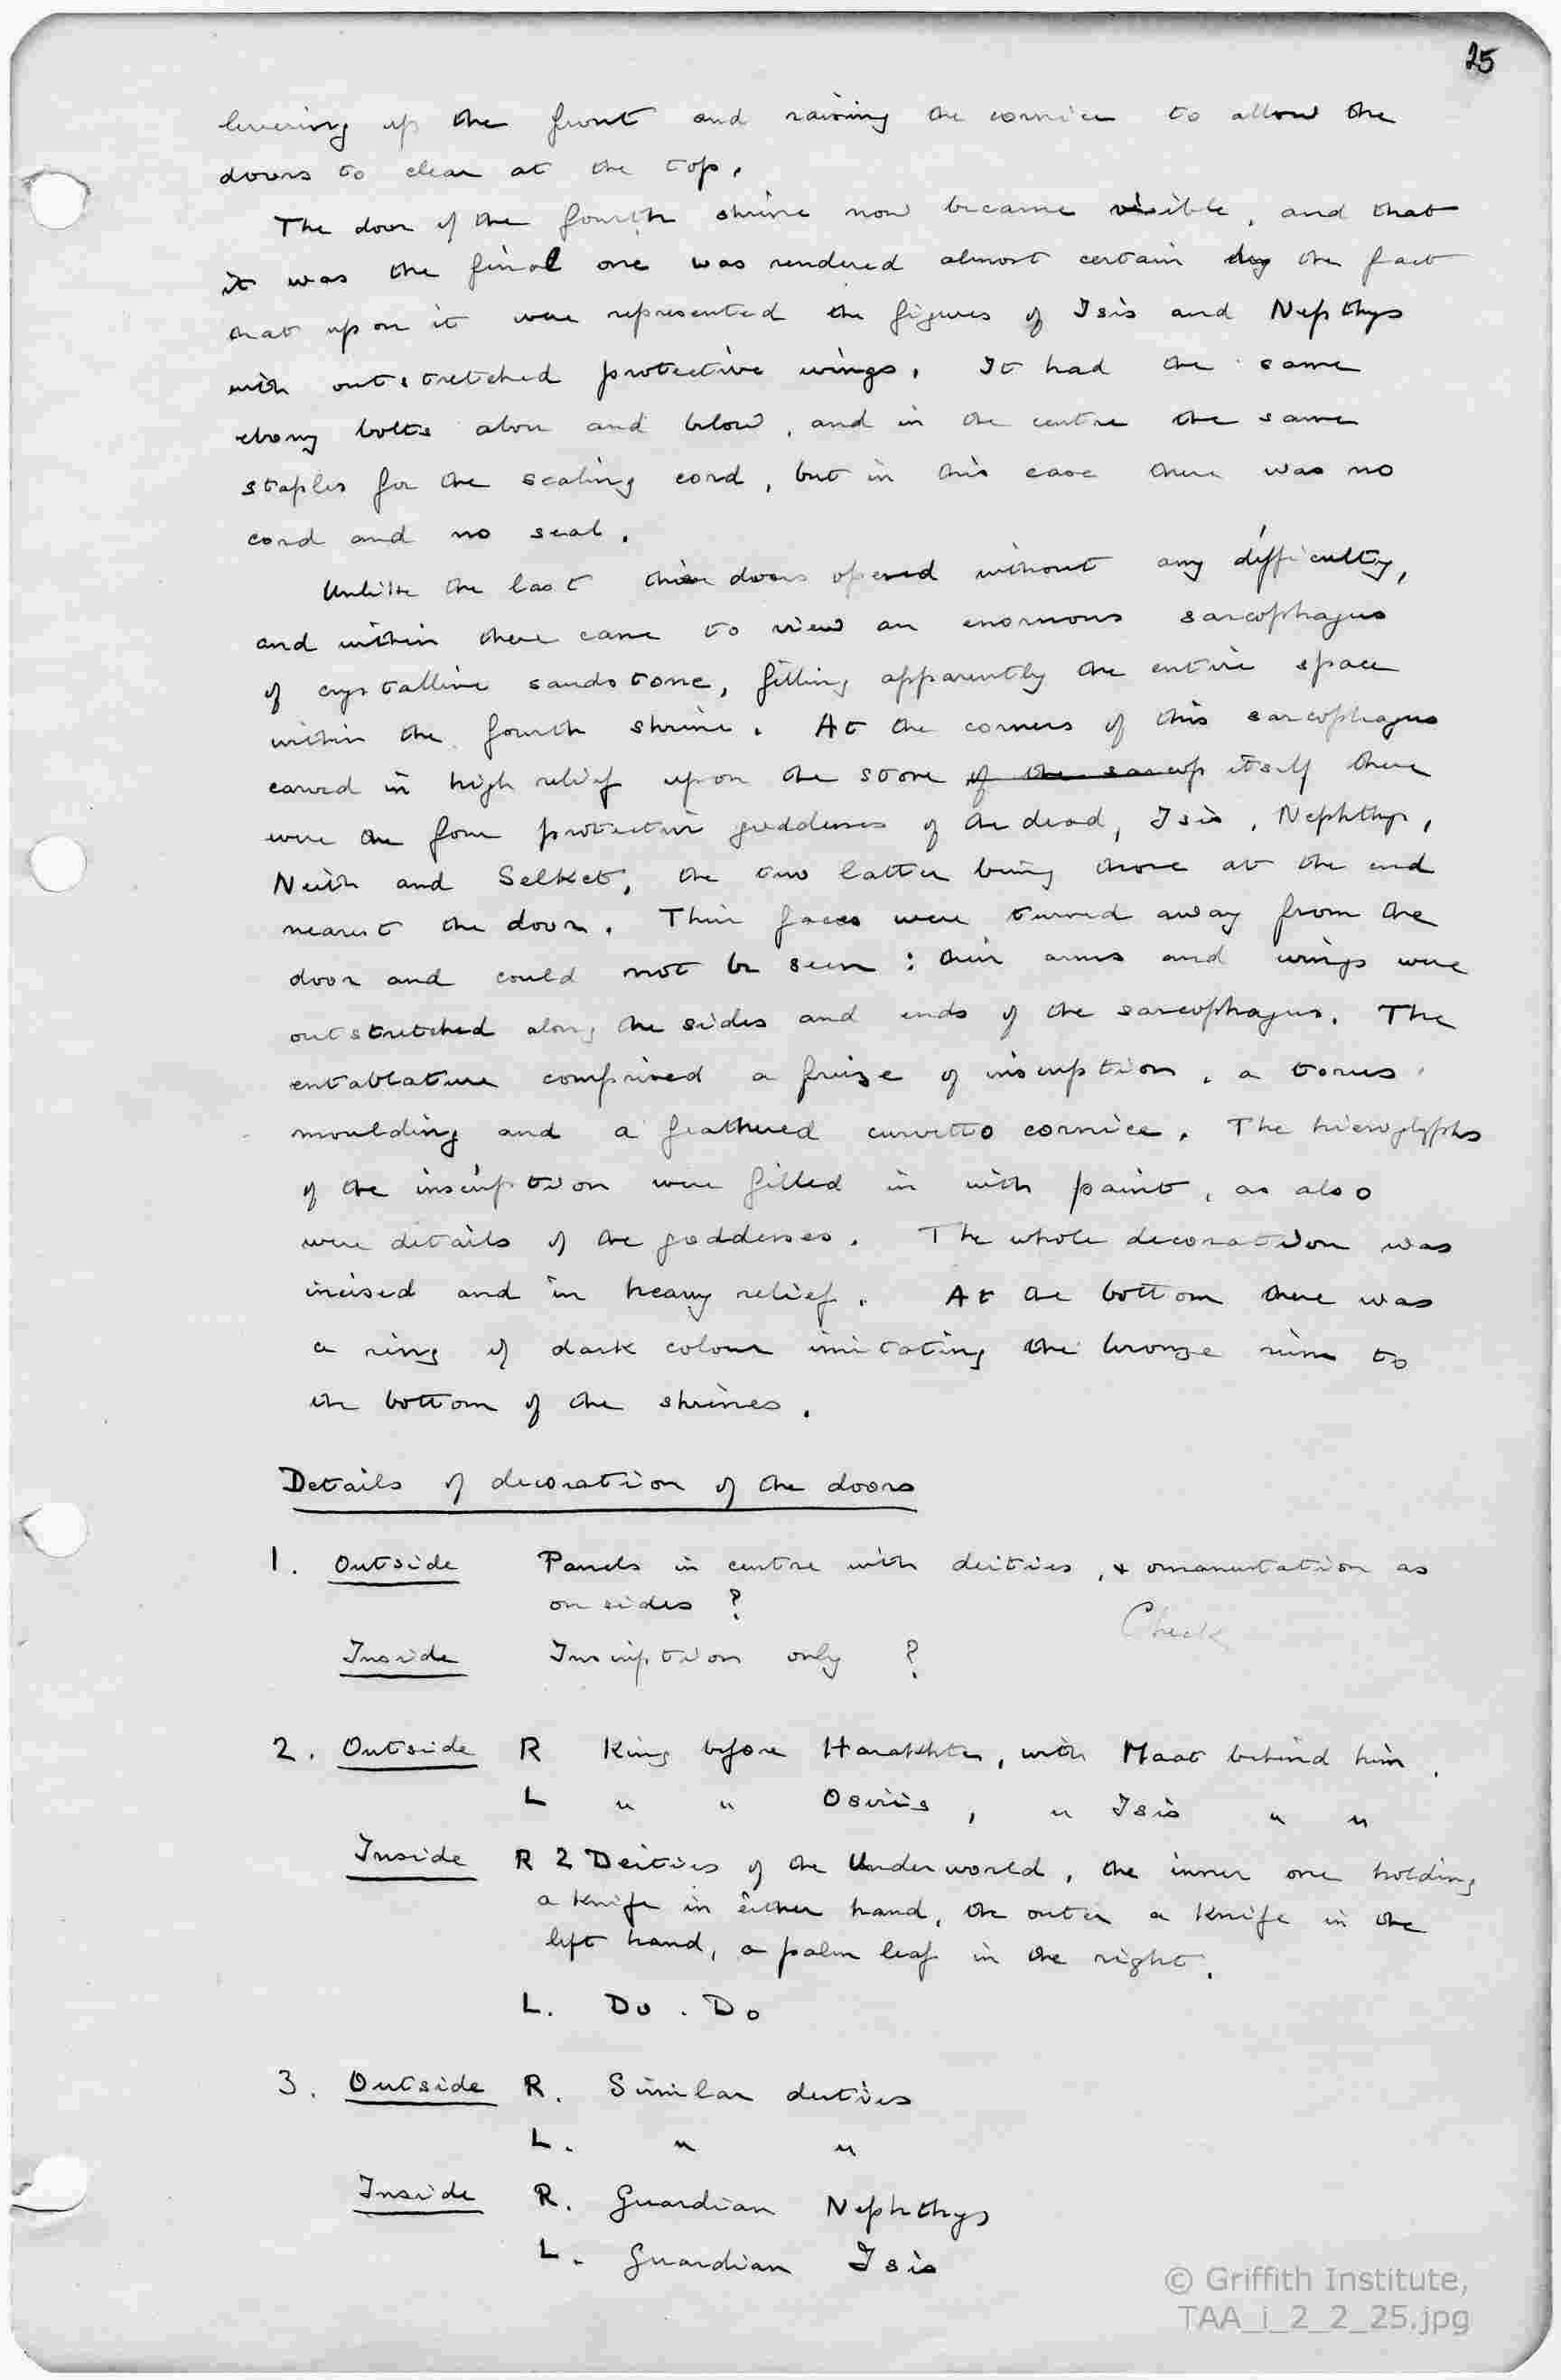 25
levering up the front and raising the cornice to allow the
doors to clear at the top.
The door of the fourth shrine now became visible, and that
it was the final one was rendered almost certain by the fact
that upon it were represented the figures of Isis and Nephthys
with outstretched protective wings. It had the same
ebony bolts above and below, and in the centre the same
staples for the sealing cord, but in this case there was no
cord and no seal.
Unlike the last these doors opened without any difficulty,
and within there came to view an enormous sarcophagus
of crystalline sandstone, filling apparently the entire space
within the fourth shrine. At the corners of this sarcophagus
carved in high relief upon the stone of the sarcop itself there
were the four protective goddesses of the dead, Isis, Nephthys,
Neith and Selket, the two latter being those at the end
nearest the door. Their faces were turned away from the
door and could not be seen : their arms and wings were
outstretched along the sides and ends of the sarcophagus. The
entablature comprised a frieze of inscription, a torus
moulding and a feathered cavetto cornice. The hieroglyphs
of the inscription were filled in with paint, as also
were details of the goddesses. The whole decoration was
incised and in heavy relief. At the bottom there was
a ring of dark colour imitating the bronze rim to
the bottom of the shrines.
Details of decoration of the doors
1. Outside Panels in centre with deities, & ornamentation as
on sides ?
Check
Inside Inscription only ?
2. Outside R King before Harakhte, with Maat behind him.
L " " Osiris, " Isis " "
Inside R 2 Deities of the Underworld, the inner one holding
a knife in either hand, the outer a knife in the
left hand, a palm leaf in the right.
L. Do. Do
3. Outside R. Similar deities
L. " "
Inside R. Guardian Nephthys
L. Guardian Isis
© Griffith Institute,
TAA_i_2_2_25.jpg